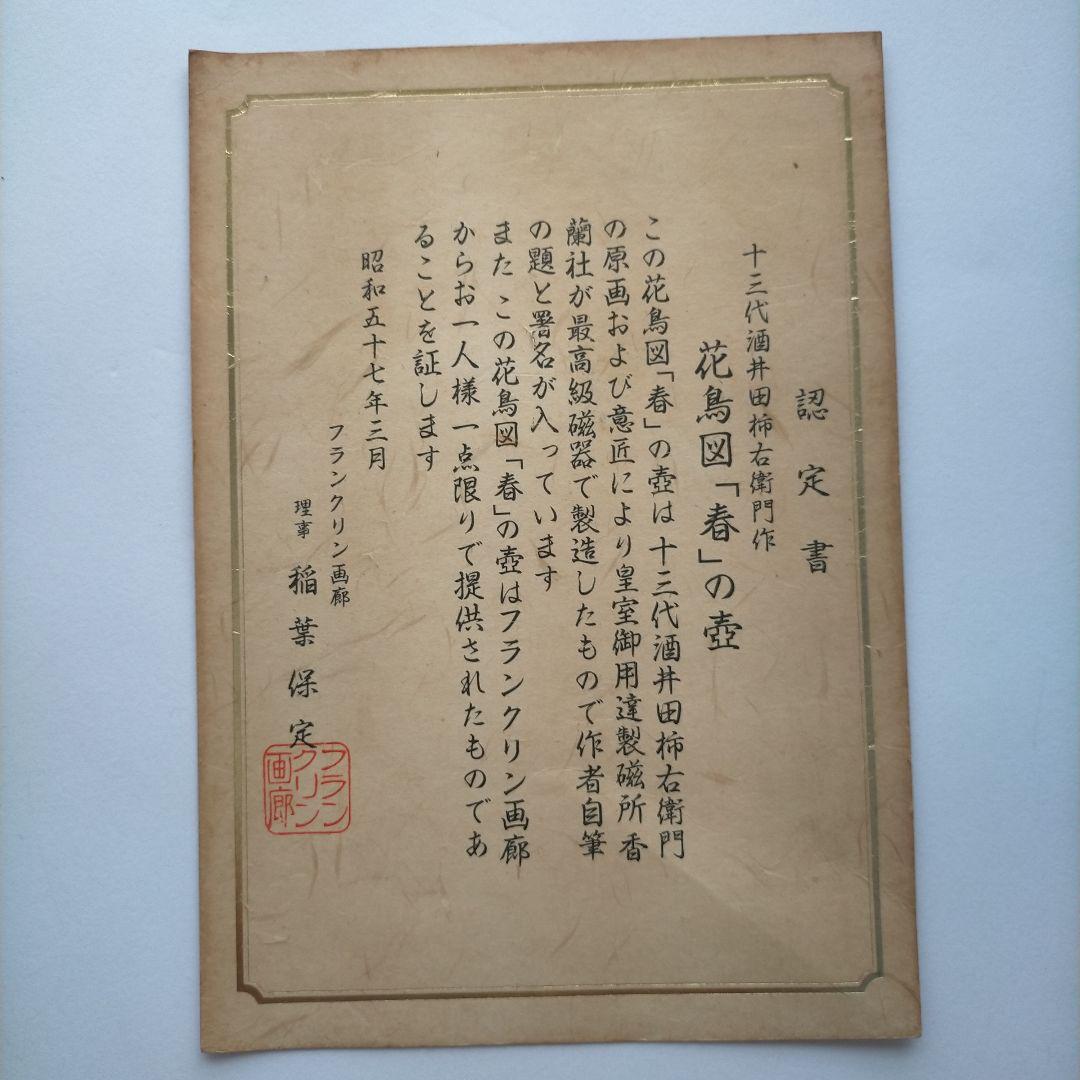 認定書
十三代酒井田柿右衛門作
花鳥図「春」の壺
この花鳥図「春」の壺は十三代酒井田柿右衛門
の原画および意匠により皇室御用達製磁所香
蘭社が最高級磁器で製造したもので作者自筆
の題と署名が入っています
また この花鳥図「春」の壺はフランクリン画廊
からお一人様一点限りで提供されたものであ
ることを証します
昭和五十七年三月
フランクリン画廊
理事 稲葉保定
フラン
クリン
画廊